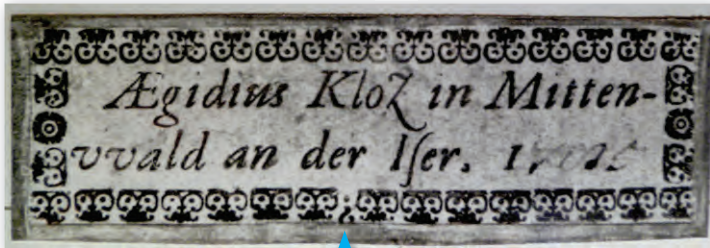 Ægidius Kloz in Mitten-
vvald an der Iſer.